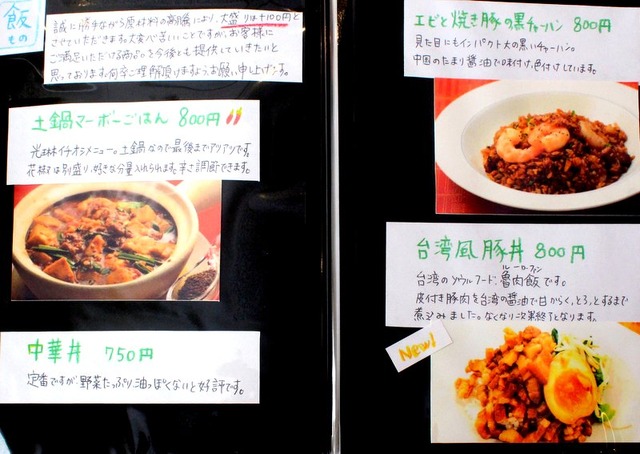 飯
もの
誠に勝手ながら原材料の高騰により、大盛りは+100円と
させていただきます。大変心苦しいことですが、お客様に
ご満足いただける商品を今後とも提供していきたいと
思っております。何卒ご理解頂けますようお願い申し上げます。
土鍋マーボーごはん 800円
光林イチオシメニュー。土鍋なので最後までアツアツです。
花椒は別盛り、好きな分量入れられます。辛さ調節できます。
中華丼 750円
定番ですが野菜たっぷり油っぽくないと好評です。
エビと焼き豚の黒チャーハン 800円
見た目にもインパクト大の黒いチャーハン。
中国のたまり醤油で味付け、色付けしています。
台湾風豚丼 800円
ルーローファン
台湾のソウルフード・魯肉飯です。
皮付き豚肉を台湾の醤油で甘からく、とろっとするまで
煮込みました。なくなり次第終了となります。
New!